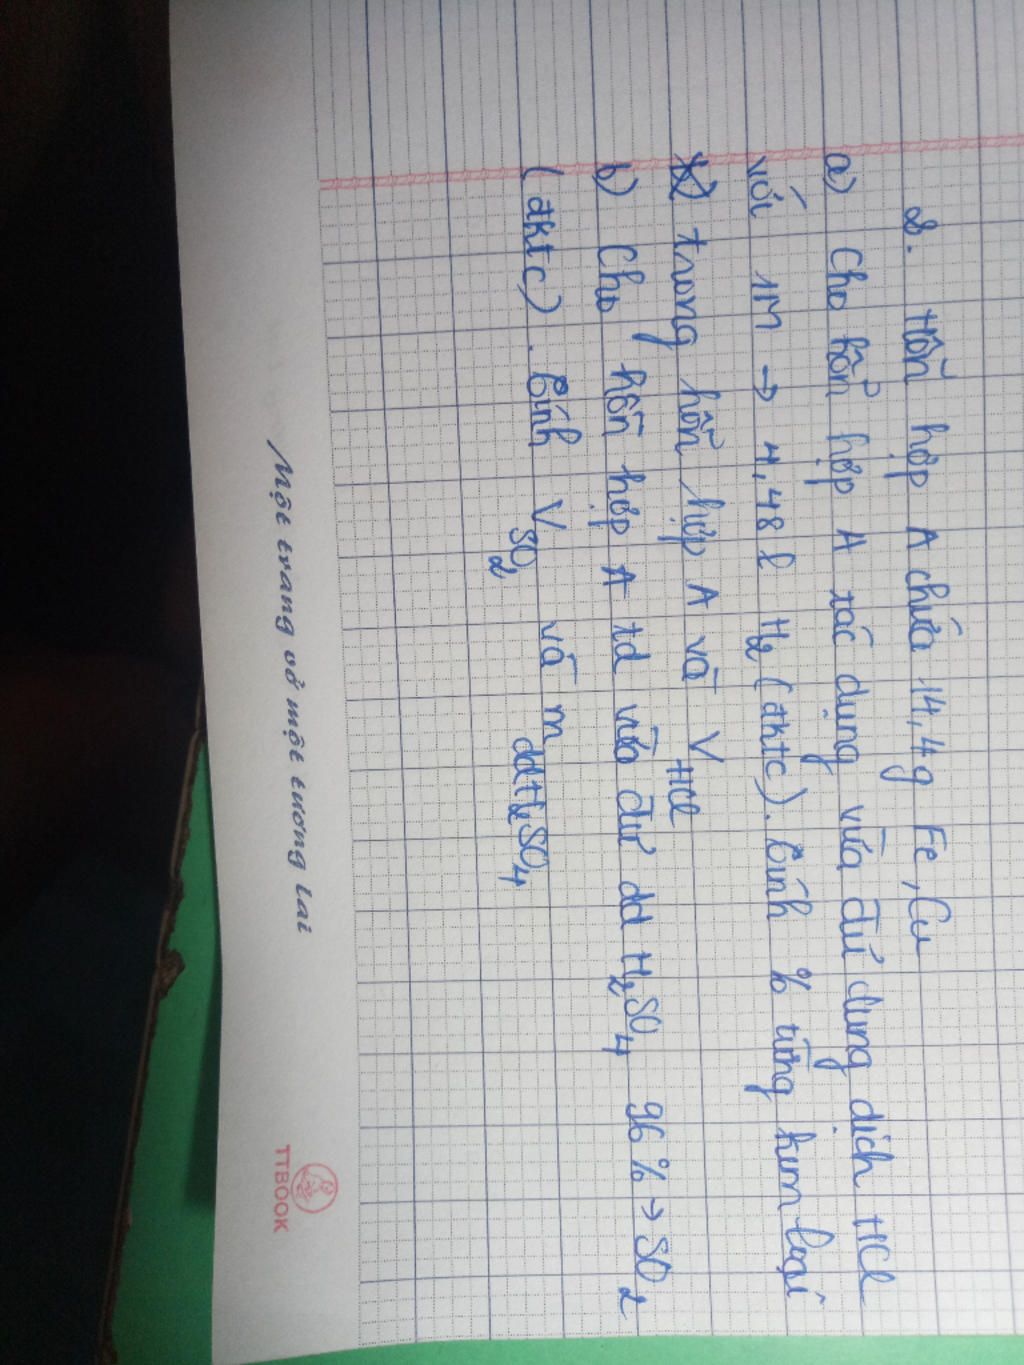 2. Hỗn hợp A chứa 14,4g Fe, Cu
a) Cho hổn hợp A tác dụng vừa đủ dung dịch HCl
với 1M → 4,48 l H2 (đktc). Tính % từng kim loại
trong hổn hợp A và V HCl
b) Cho hỗn hợp A td vừa đủ dd H2SO4 96% → SO2
(đktc). Tính V SO2 và m ddH2SO4
Một trang vở một tương lai
TTBOOK